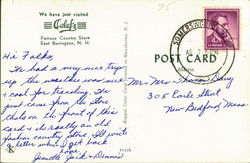 We have just visited
Calef's
Famous Country Store
East Barrington, N. H.
POST CARD
Hi Folks,
We had a very nice trip
up the weather was nice
+ cool for traveling. We
just came from the store
on the front of this
card + its really an old
fashion country store. I'll write
a letter when I get back
home
Jack + Dennis
Mr + Mrs
305 Earle Street
New Bedford Mass